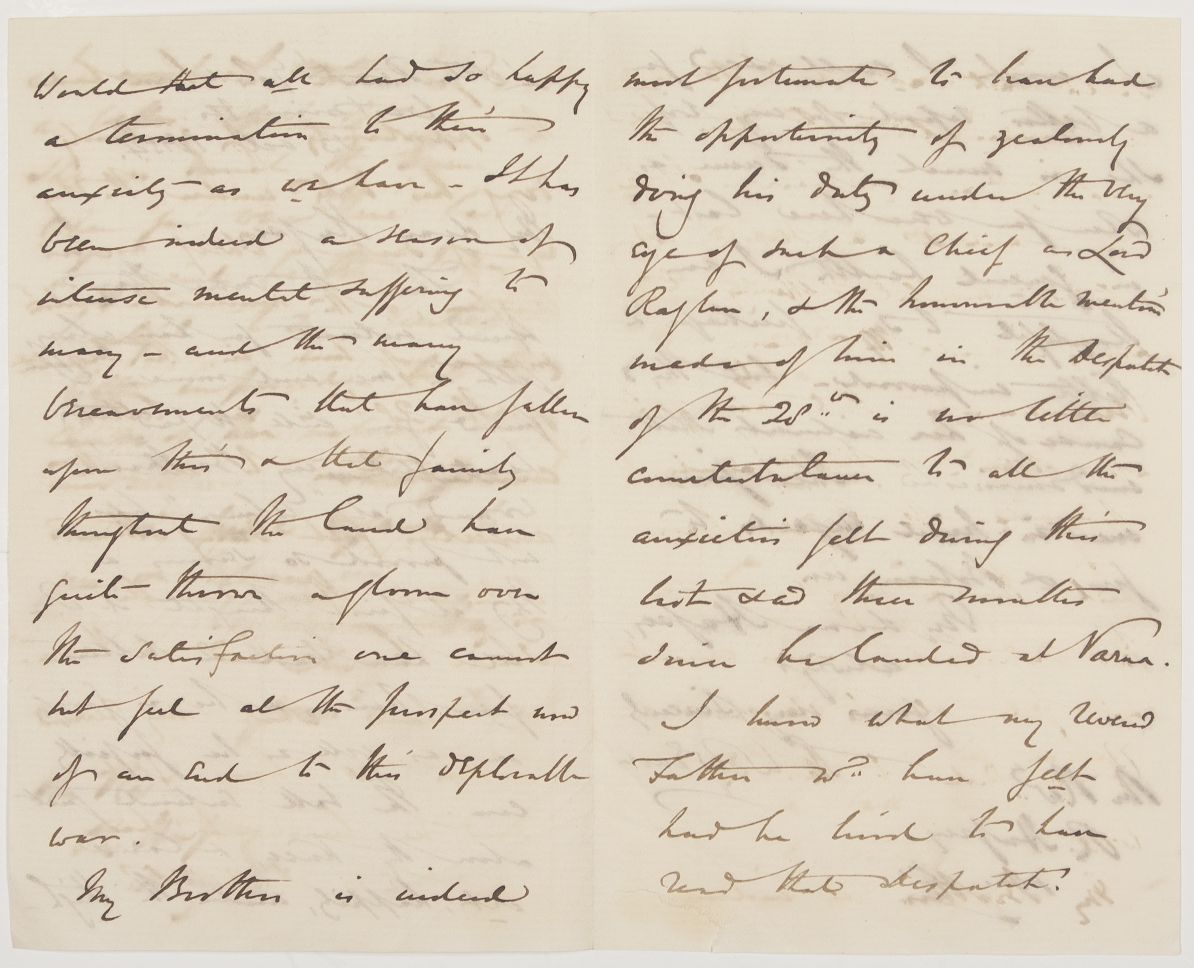 Would that all had so happy
a termination to their
anxiety as we have - It has
been indeed a season of
intense mental suffering to
many - and the many
bereavements that have fallen
upon this & that family
throughout the land have
quite thrown a gloom over
the satisfaction one cannot
but feel at the prospect now
of an end to this deplorable
war.
My Brother is indeed
most fortunate to have had
the opportunity of zealously
doing his duty under the very
eye of such a Chief as Lord
Raglan, & the honourable mention
made of him in the Despatch
of the 28th is no little
counterbalance to all the
anxieties felt during this
last sad three months
since he landed at Varna.
I know what my revered
Father wd have felt
had he lived to have
read that despatch!